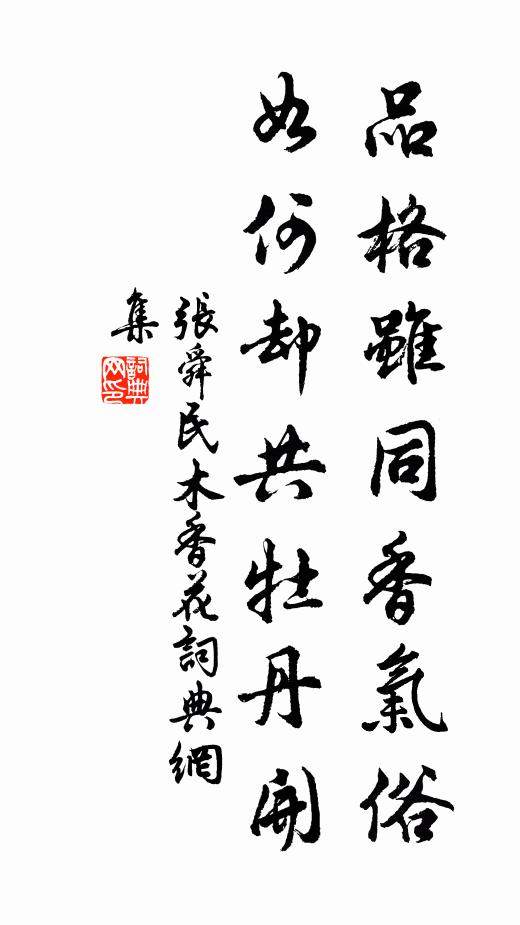 品格雖同香氣俗
如何却共牡丹開
張舜民木香花詞典網
集
詞典
网印